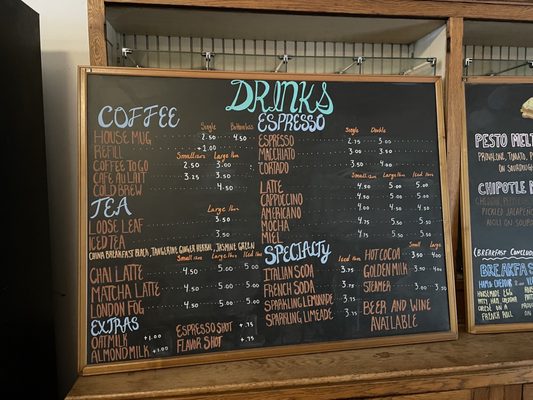 DRINKS
COFFEE
Single Bottomless
HOUSE MUG 2.50 4.50
REFILL +1.00
Small 12oz Large 16oz
COFFEE TO GO 2.50 3.00
CAFE AU LAIT 3.25 3.50
COLD BREW 4.50
TEA
Large 16oz
LOOSE LEAF 3.50
ICED TEA 3.50
CHINA BREAKFAST BLACK, TANGERINE GINGER HERBAL, JASMINE GREEN
Small 12oz Large 16oz Iced 16oz
CHAI LATTE 4.50 5.00 5.00
MATCHA LATTE 4.50 5.00 5.00
LONDON FOG 4.50 5.00 5.00
EXTRAS
OATMILK +1.00
ALMOND MILK +1.00
ESPRESSO SHOT +.75
FLAVOR SHOT +.75
ESPRESSO
Single Double
ESPRESSO 2.75 3.00
MACCHIATO 3.25 3.50
CORTADO 3.50 4.00
Small 12oz Large 16oz Iced 16oz
LATTE 4.50 5.00 5.00
CAPPUCCINO 4.50 5.00
AMERICANO
MOCHA
MIEL
SPECIALTY
Iced 16oz
ITALIAN SODA 3.75
FRENCH SODA 3.75
SPARKLING LEMONADE 3.50
SPARKLING LIMEADE 3.50
Small Large
HOT COCOA 3.50 4.00
GOLDEN MILK
STEAMER
BEER AND WINE
AVAILABLE
PESTO MELT
PROVALONE, TOMATO,
ON SOURDOUGH
CHIPOTLE
PICKLED JALAPENO
AIOLI ON SOURD
BREAKFAST